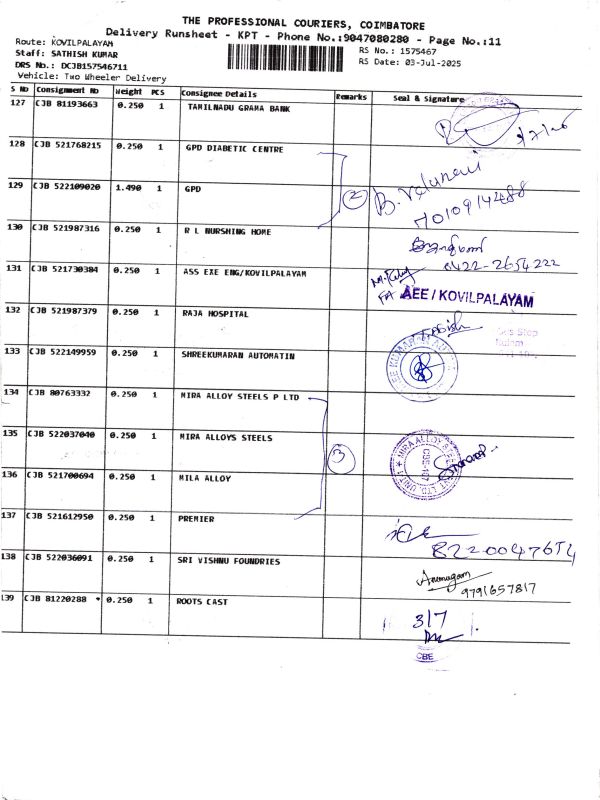 THE PROFESSIONAL COURIERS, COIMBATORE
Delivery Runsheet - KPT - Phone No.:9047080280 - Page No.:11
Route: KOVILPALAYAM
RS No.: 1575467
Staff: SATHISH KUMAR
RS Date: 03-Jul-2025
DRS No.: DCJB157546711
Vehicle: Two Wheeler Delivery
S No Consignment No Weight PCS Consignee Details Remarks Seal & Signature
127 CJB 81193663 0.250 1 TAMILNADU GRAMA BANK
128 CJB 521768215 0.250 1 GPD DIABETIC CENTRE
129 CJB 522109020 1.490 1 GPD 2 B. Velumani
7010914488
130 CJB 521987316 0.250 1 R L NURSHING HOME
0422-2654222
131 CJB 521730384 0.250 1 ASS EXE ENG/KOVILPALAYAM
AEE / KOVILPALAYAM
132 CJB 521987379 0.250 1 RAJA HOSPITAL
133 CJB 522149959 0.250 1 SHREEKUMARAN AUTOMATIN
134 CJB 80763332 0.250 1 MIRA ALLOY STEELS P LTD
135 CJB 522037040 0.250 1 MIRA ALLOYS STEELS 3
136 CJB 521700694 0.250 1 MILA ALLOY
137 CJB 521612950 0.250 1 PREMIER
8220047654
138 CJB 522036091 0.250 1 SRI VISHNU FOUNDRIES Arumugam
9791657817
139 CJB 81220288 * 0.250 1 ROOTS CAST 3/7
CBE